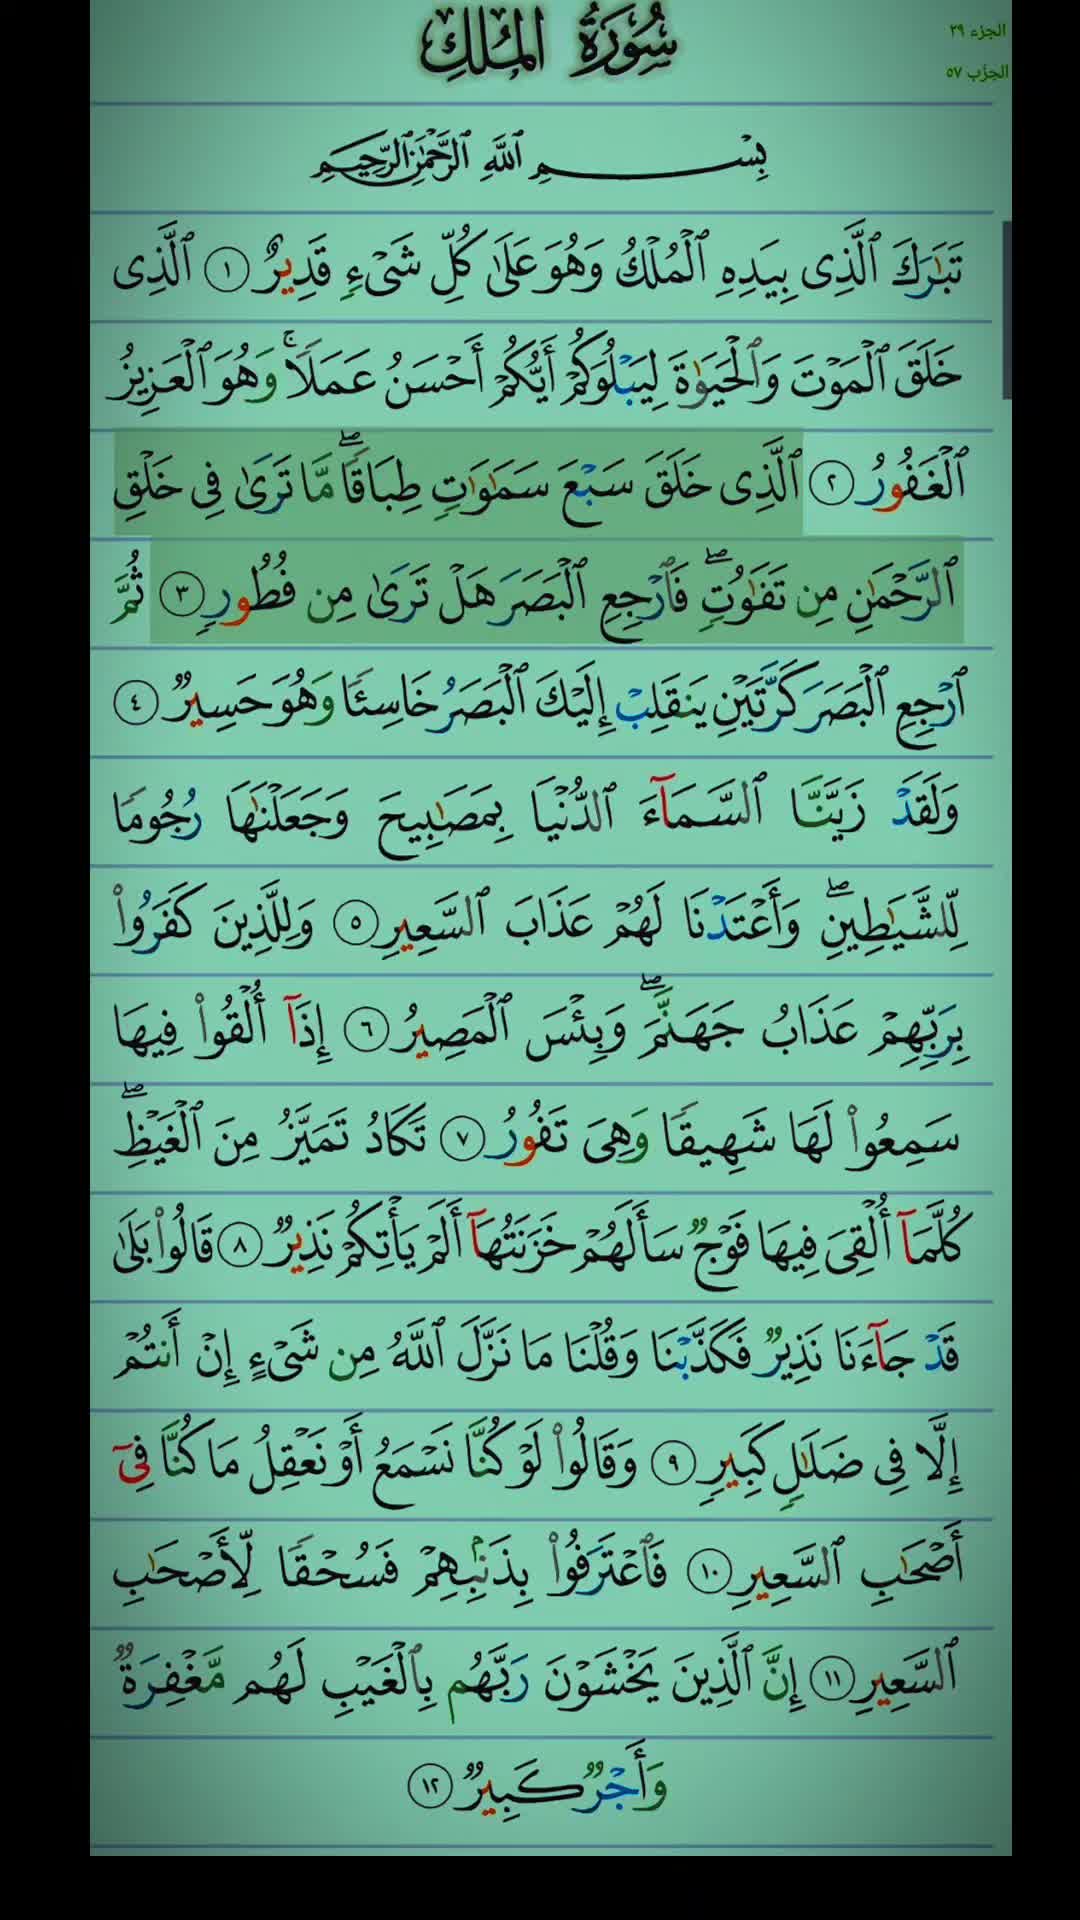 سُورَةُ المُلكِ
الجزء ٢٩
الحِزْب ٥٧
بِسْمِ ٱللَّهِ ٱلرَّحْمَٰنِ ٱلرَّحِيمِ
تَبَٰرَكَ ٱلَّذِى بِيَدِهِ ٱلْمُلْكُ وَهُوَ عَلَىٰ كُلِّ شَىْءٍ قَدِيرٌ ١ ٱلَّذِى
خَلَقَ ٱلْمَوْتَ وَٱلْحَيَوٰةَ لِيَبْلُوَكُمْ أَيُّكُمْ أَحْسَنُ عَمَلًا ۚ وَهُوَ ٱلْعَزِيزُ
ٱلْغَفُورُ ٢ ٱلَّذِى خَلَقَ سَبْعَ سَمَٰوَٰتٍ طِبَاقًا ۖ مَّا تَرَىٰ فِى خَلْقِ
ٱلرَّحْمَٰنِ مِن تَفَٰوُتٍ ۖ فَٱرْجِعِ ٱلْبَصَرَ هَلْ تَرَىٰ مِن فُطُورٍ ٣ ثُمَّ
ٱرْجِعِ ٱلْبَصَرَ كَرَّتَيْنِ يَنقَلِبْ إِلَيْكَ ٱلْبَصَرُ خَاسِئًا وَهُوَ حَسِيرٌ ٤
وَلَقَدْ زَيَّنَّا ٱلسَّمَآءَ ٱلدُّنْيَا بِمَصَٰبِيحَ وَجَعَلْنَٰهَا رُجُومًا
لِّلشَّيَٰطِينِ ۖ وَأَعْتَدْنَا لَهُمْ عَذَابَ ٱلسَّعِيرِ ٥ وَلِلَّذِينَ كَفَرُوا۟
بِرَبِّهِمْ عَذَابُ جَهَنَّمَ ۖ وَبِئْسَ ٱلْمَصِيرُ ٦ إِذَآ أُلْقُوا۟ فِيهَا
سَمِعُوا۟ لَهَا شَهِيقًا وَهِىَ تَفُورُ ٧ تَكَادُ تَمَيَّزُ مِنَ ٱلْغَيْظِ ۖ
كُلَّمَآ أُلْقِىَ فِيهَا فَوْجٌ سَأَلَهُمْ خَزَنَتُهَآ أَلَمْ يَأْتِكُمْ نَذِيرٌ ٨ قَالُوا۟ بَلَىٰ
قَدْ جَآءَنَا نَذِيرٌ فَكَذَّبْنَا وَقُلْنَا مَا نَزَّلَ ٱللَّهُ مِن شَىْءٍ إِنْ أَنتُمْ
إِلَّا فِى ضَلَٰلٍ كَبِيرٍ ٩ وَقَالُوا۟ لَوْ كُنَّا نَسْمَعُ أَوْ نَعْقِلُ مَا كُنَّا فِىٓ
أَصْحَٰبِ ٱلسَّعِيرِ ١٠ فَٱعْتَرَفُوا۟ بِذَنۢبِهِمْ فَسُحْقًا لِّأَصْحَٰبِ
ٱلسَّعِيرِ ١١ إِنَّ ٱلَّذِينَ يَخْشَوْنَ رَبَّهُم بِٱلْغَيْبِ لَهُم مَّغْفِرَةٌ
وَأَجْرٌ كَبِيرٌ ١٢